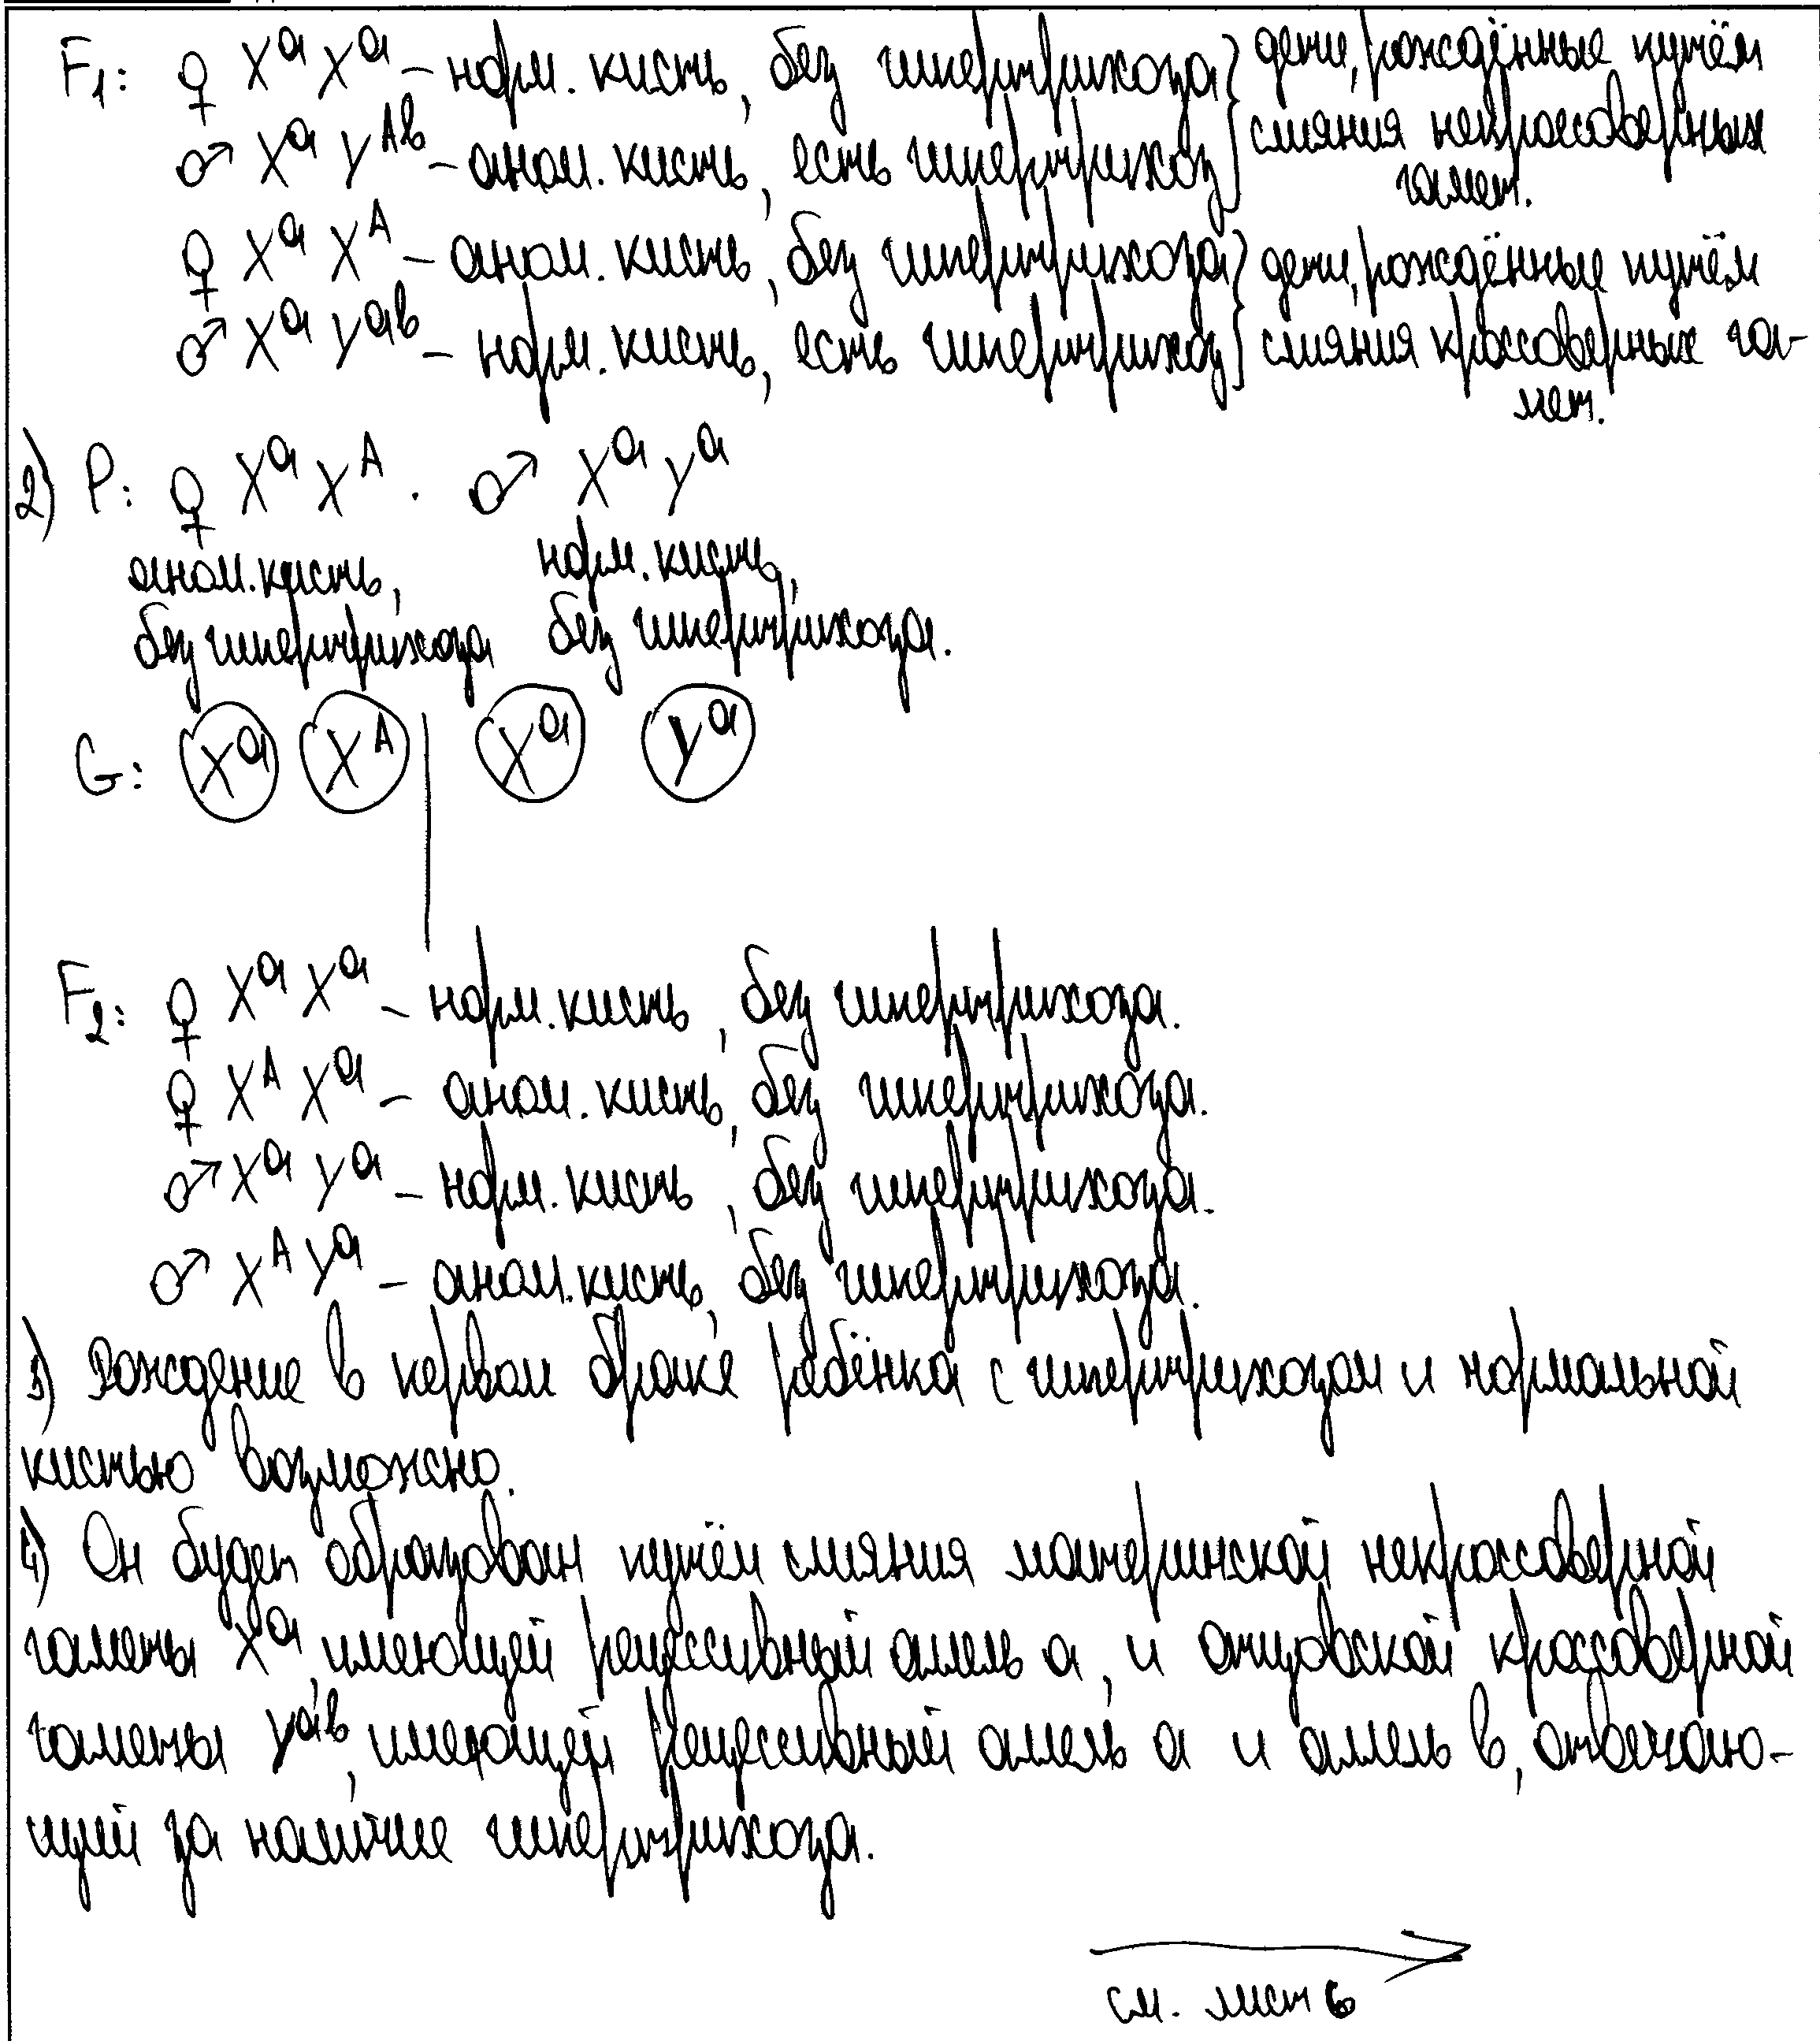 F₁: ♀ XᵃXᵃ – норм. кисть, без гипертрихоза } дети, рождённые путём
♂ XᵃYᴬᵇ – аном. кисть, есть гипертрихоз } слияния некроссоверных
гамет.
♀ XᵃXᴬ – аном. кисть, без гипертрихоза } дети, рождённые путём
♂ XᵃYᵃᵇ – норм. кисть, есть гипертрихоз } слияния кроссоверных га-
мет.
2) P: ♀ XᵃXᴬ · ♂ XᵃYᵃ
аном. кисть, норм. кисть,
без гипертрихоза без гипертрихоза.
G: Xᵃ Xᴬ | Xᵃ Yᵃ
F₂: ♀ XᵃXᵃ – норм. кисть, без гипертрихоза.
♀ XᴬXᵃ – аном. кисть, без гипертрихоза.
♂ XᵃYᵃ – норм. кисть, без гипертрихоза.
♂ XᴬYᵃ – аном. кисть, без гипертрихоза.
3) Рождение в первом браке ребёнка с гипертрихозом и нормальной
кистью возможно.
4) Он будет образован путём слияния материнской некроссоверной
гаметы Xᵃ, имеющей рецессивный аллель а, и отцовской кроссоверной
гаметы Yᵃᵇ, имеющей рецессивный аллель а и аллель в, отвечаю-
щий за наличие гипертрихоза.
см. лист 6